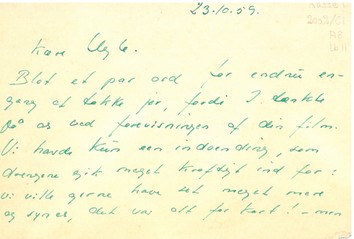 23.10.59.
Kære
Blot et par ord for endnu en-
gang at takke jer, fordi I tænkte
på os ved forevisningen af din film.
Vi havde kun een indvending, som
drengene gik meget kraftigt ind for:
vi ville gerne have set meget mere
og synes, det var alt for kort! – men